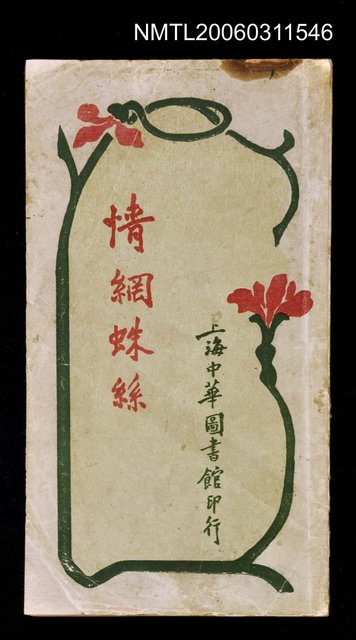 NMTL20060311546
情網蛛絲
上海中華圖書館印行